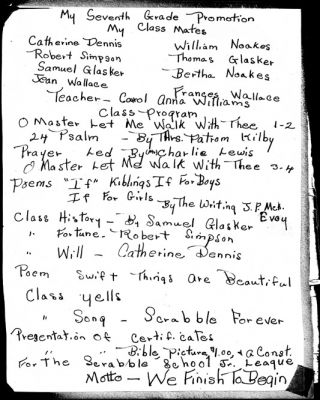 My Seventh Grade Promotion
My Class Mates
Catherine Dennis William Noakes
Robert Simpson Thomas Glasker
Samuel Glasker Bertha Noakes
Jean Wallace Frances Wallace
Teacher - Carol Anna Williams
Class Program
O Master Let Me Walk With Thee 1-2
24 Psalm - By Mrs. Patrom Kilby
Prayer Led By Mr. Charlie Lewis
O Master Let Me Walk With Thee 3-4
Poems "If" Kiblings If For Boys
If For Girls - By The Writing J.P. McEvoy
Class History - By Samuel Glasker
" Fortune - Robert Simpson
" Will - Catherine Dennis
Poem Swift Things Are Beautiful
Class yells
" Song - Scrabble Forever
Presentation of Certificates
" " Bible, picture, $1.00, & a Const.
For The Scrabble School Jr. League
Motto - We Finish To Begin